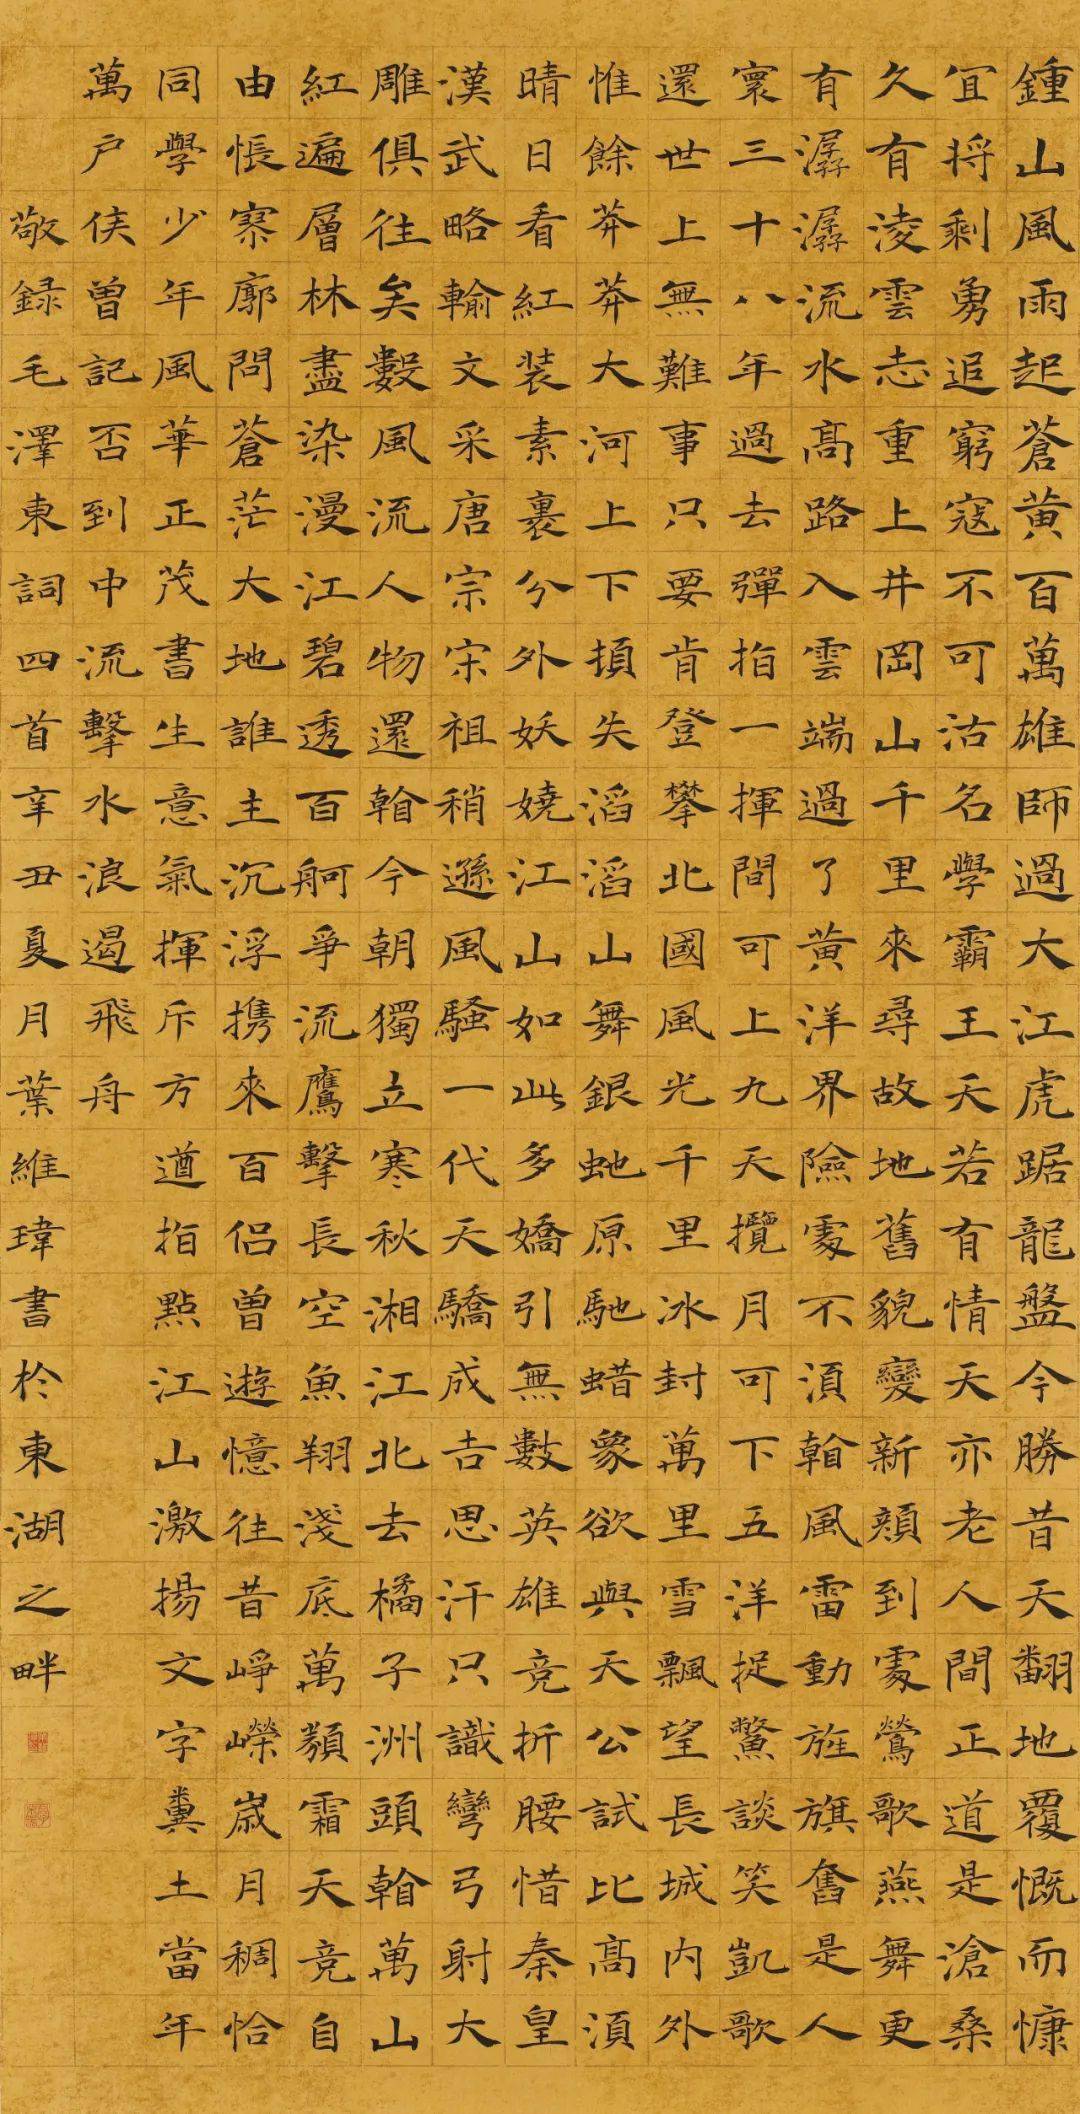 鍾山風雨起蒼黃百萬雄師過大江虎踞龍盤今勝昔天翻地覆慨而慷
宜將剩勇追窮寇不可沽名學霸王天若有情天亦老人間正道是滄桑
久有凌雲志重上井岡山千里來尋故地舊貌變新顏到處鶯歌燕舞更
有潺潺流水高路入雲端過了黃洋界險處不須看風雷動旌旗奮是人
寰三十八年過去彈指一揮間可上九天攬月可下五洋捉鱉談笑凱歌
還世上無難事只要肯登攀北國風光千里冰封萬里雪飄望長城內外
惟餘莽莽大河上下頓失滔滔山舞銀虵原馳蜡象欲與天公試比高須
晴日看紅装素裹分外妖嬈江山如此多嬌引無數英雄竞折腰惜秦皇
漢武略輸文采唐宗宋祖稍遜風騷一代天驕成吉思汗只識彎弓射大
雕俱往矣數風流人物還看今朝獨立寒秋湘江北去橘子洲頭看萬山
紅遍層林盡染漫江碧透百舸爭流鷹擊長空魚翔淺底萬類霜天竞自
由悵寥廓問蒼茫大地誰主沉浮携來百侶曾遊憶往昔崢嶸歲月稠恰
同學少年風華正茂書生意氣揮斥方遒指點江山激揚文字糞土當年
萬戶侯曾記否到中流擊水浪遏飛舟
敬録毛澤東詞四首辛丑夏月葉維瑋書於東湖之畔